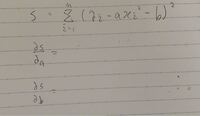 S = Σ_{i=1}^{n} (yi - axi² - b)²
∂S/∂a =
∂S/∂b =